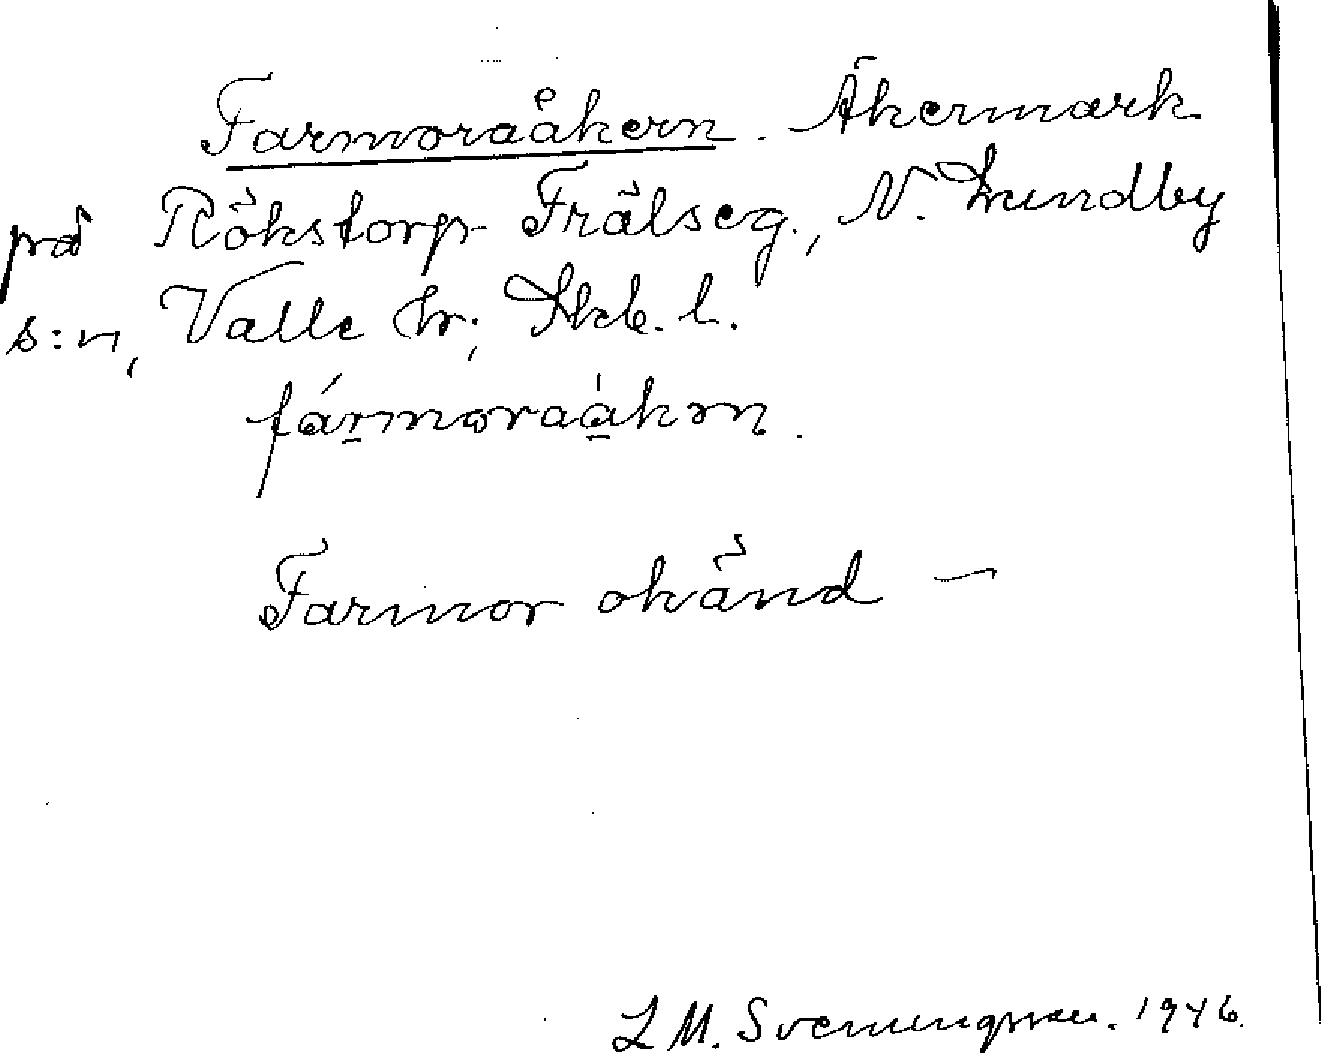 Farmoraåkern. Åkermark
på Rökstorp Frälseg., N. Lundby
s:n, Valle hr; Skb. l.
fármoraåkɘn.
Farmor okänd –
L M. Svenungsson. 1946.